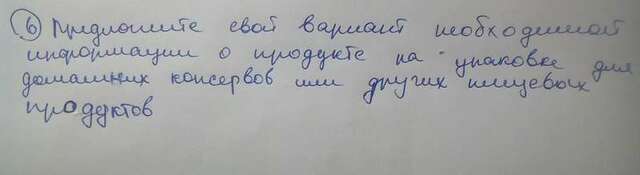 ⑥ Предложите свой вариант необходимой
информации о продукте на упаковке для
домашних консервов или других пищевых
продуктов